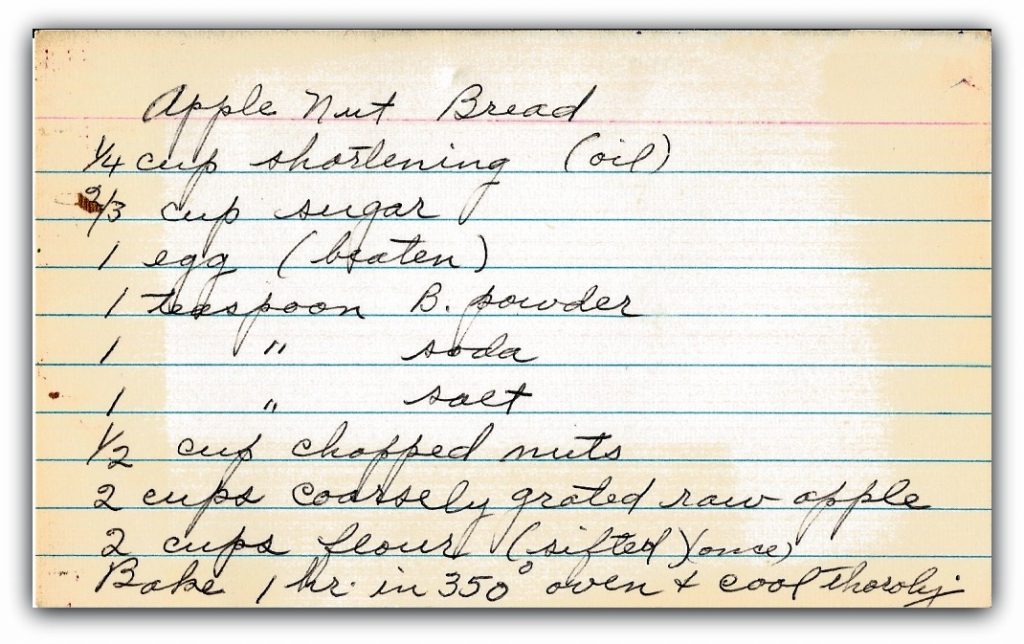 Apple Nut Bread
1/4 cup shortening (oil)
2/3 cup sugar
1 egg (beaten)
1 teaspoon B. powder
1 " soda
1 " salt
1/2 cup chopped nuts
2 cups coarsely grated raw apple
2 cups flour (sifted)(once)
Bake 1 hr. in 350° oven + cool thoroly